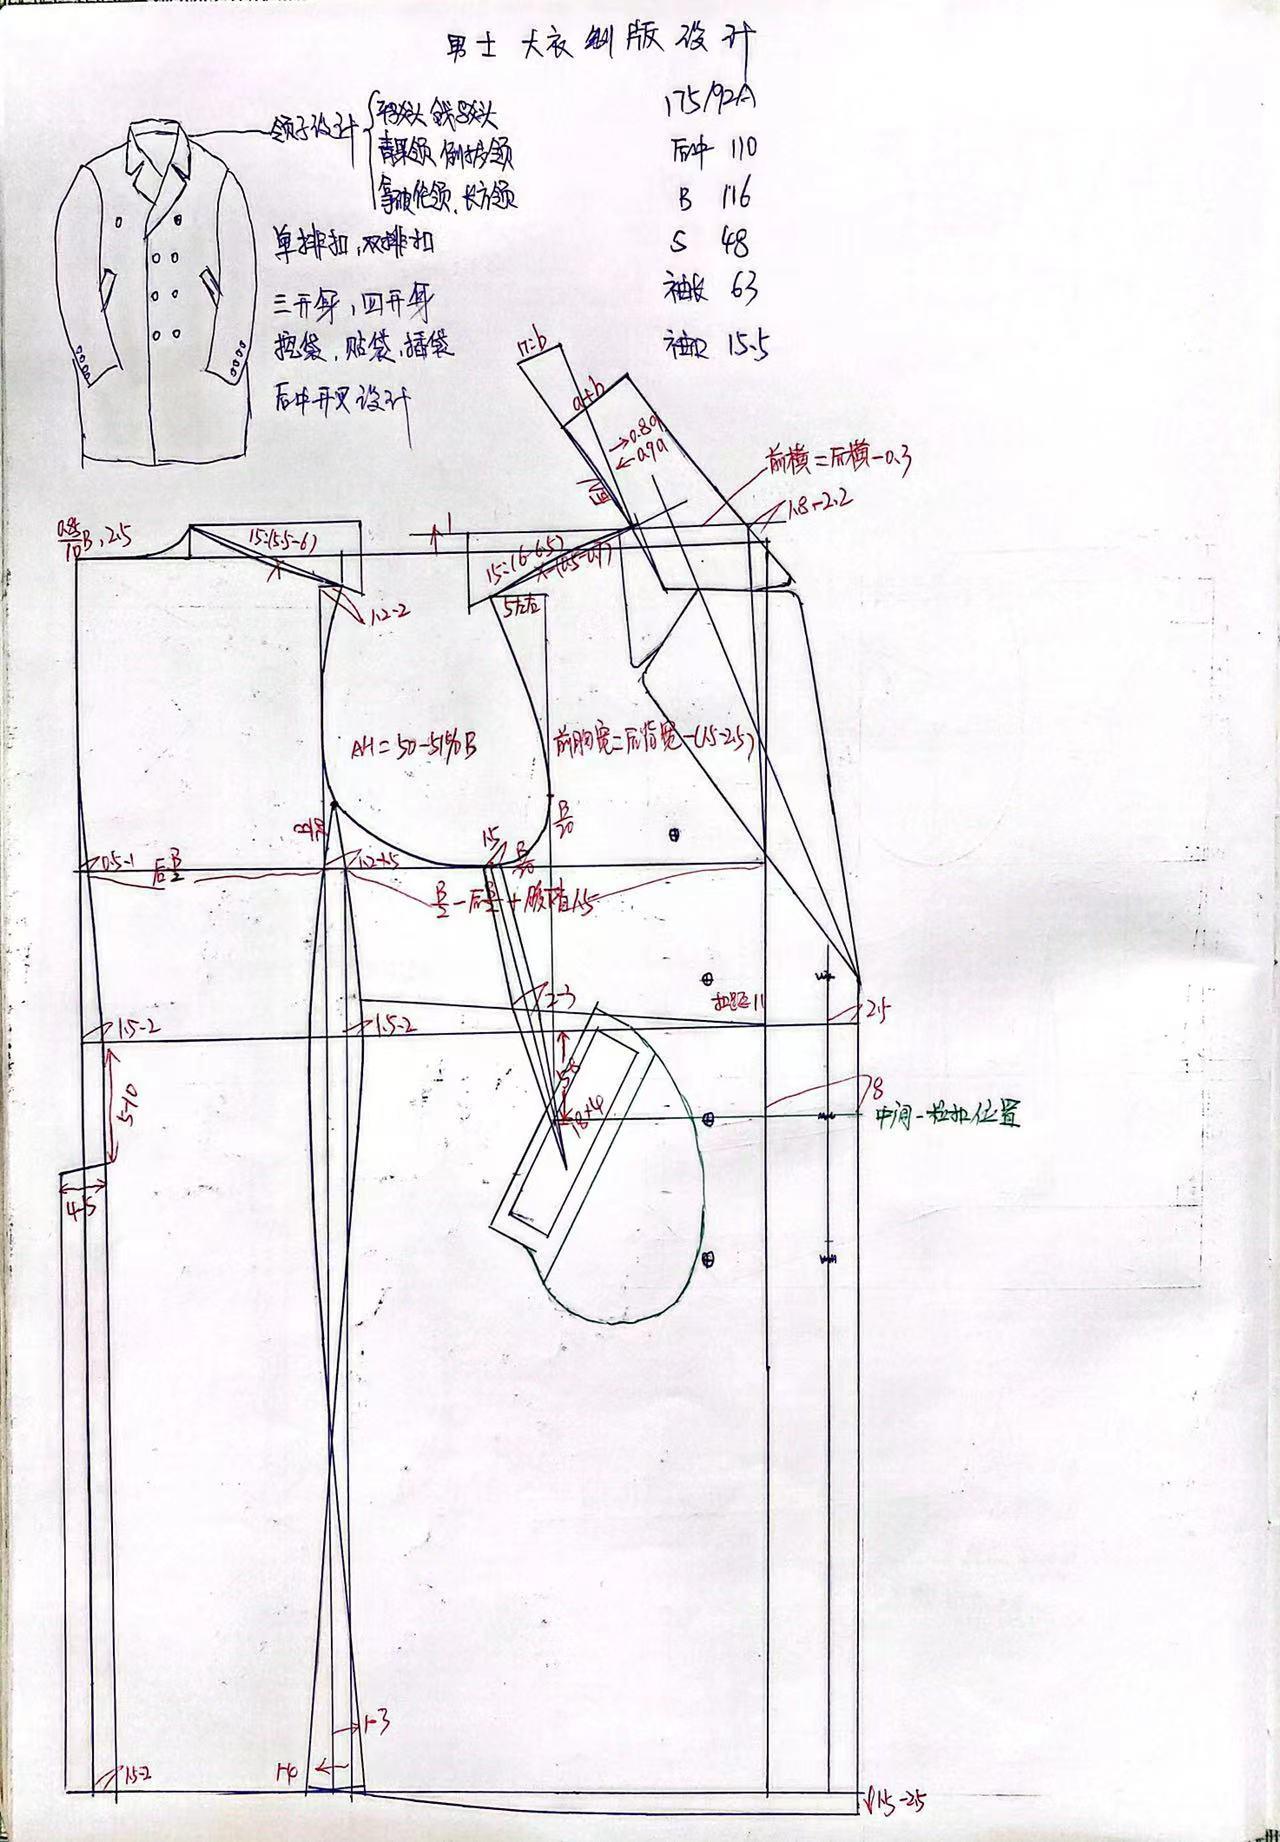 男士大衣制版设计
领子设计
平驳头 戗驳头
青果领 倒挂领
拿破伦领、长方领
单排扣，双排扣
三开身，四开身
挖袋，贴袋，插袋
后中开叉设计
175/92A
后中 110
B 116
S 48
袖长 63
袖口 15.5
n=b
a+b
→0.8a
←0.9a
前横=后横-0.3
1.8-2.2
B，2.5
15:(5.5-6)
1
15:(6-6.5)
(0.5-0.7)
1.2-2
5左右
AH=50-51%B
前胸宽=后背宽-(1.5-2.5)
B/20
1.5
0.5-1
后B/2
1.2-1.5
B/2-后B/2+腋下省1.5
2-3
扣距11
2.5
1.5-2
1.5-2
5-10
18+4
8
中间一粒扣位置
4-5
1-3
1-4
1.5-2
1.5-2.5